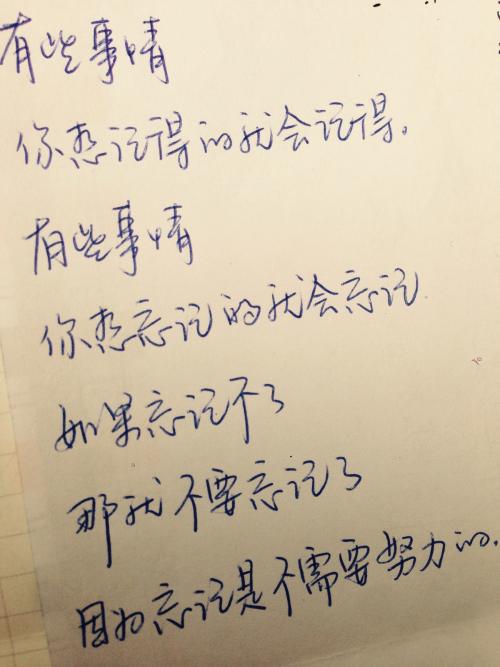 有些事情
你想记得的就会记得。
有些事情
你想忘记的就会忘记
如果忘记不了
那就不要忘记了
因为忘记是不需要努力的.